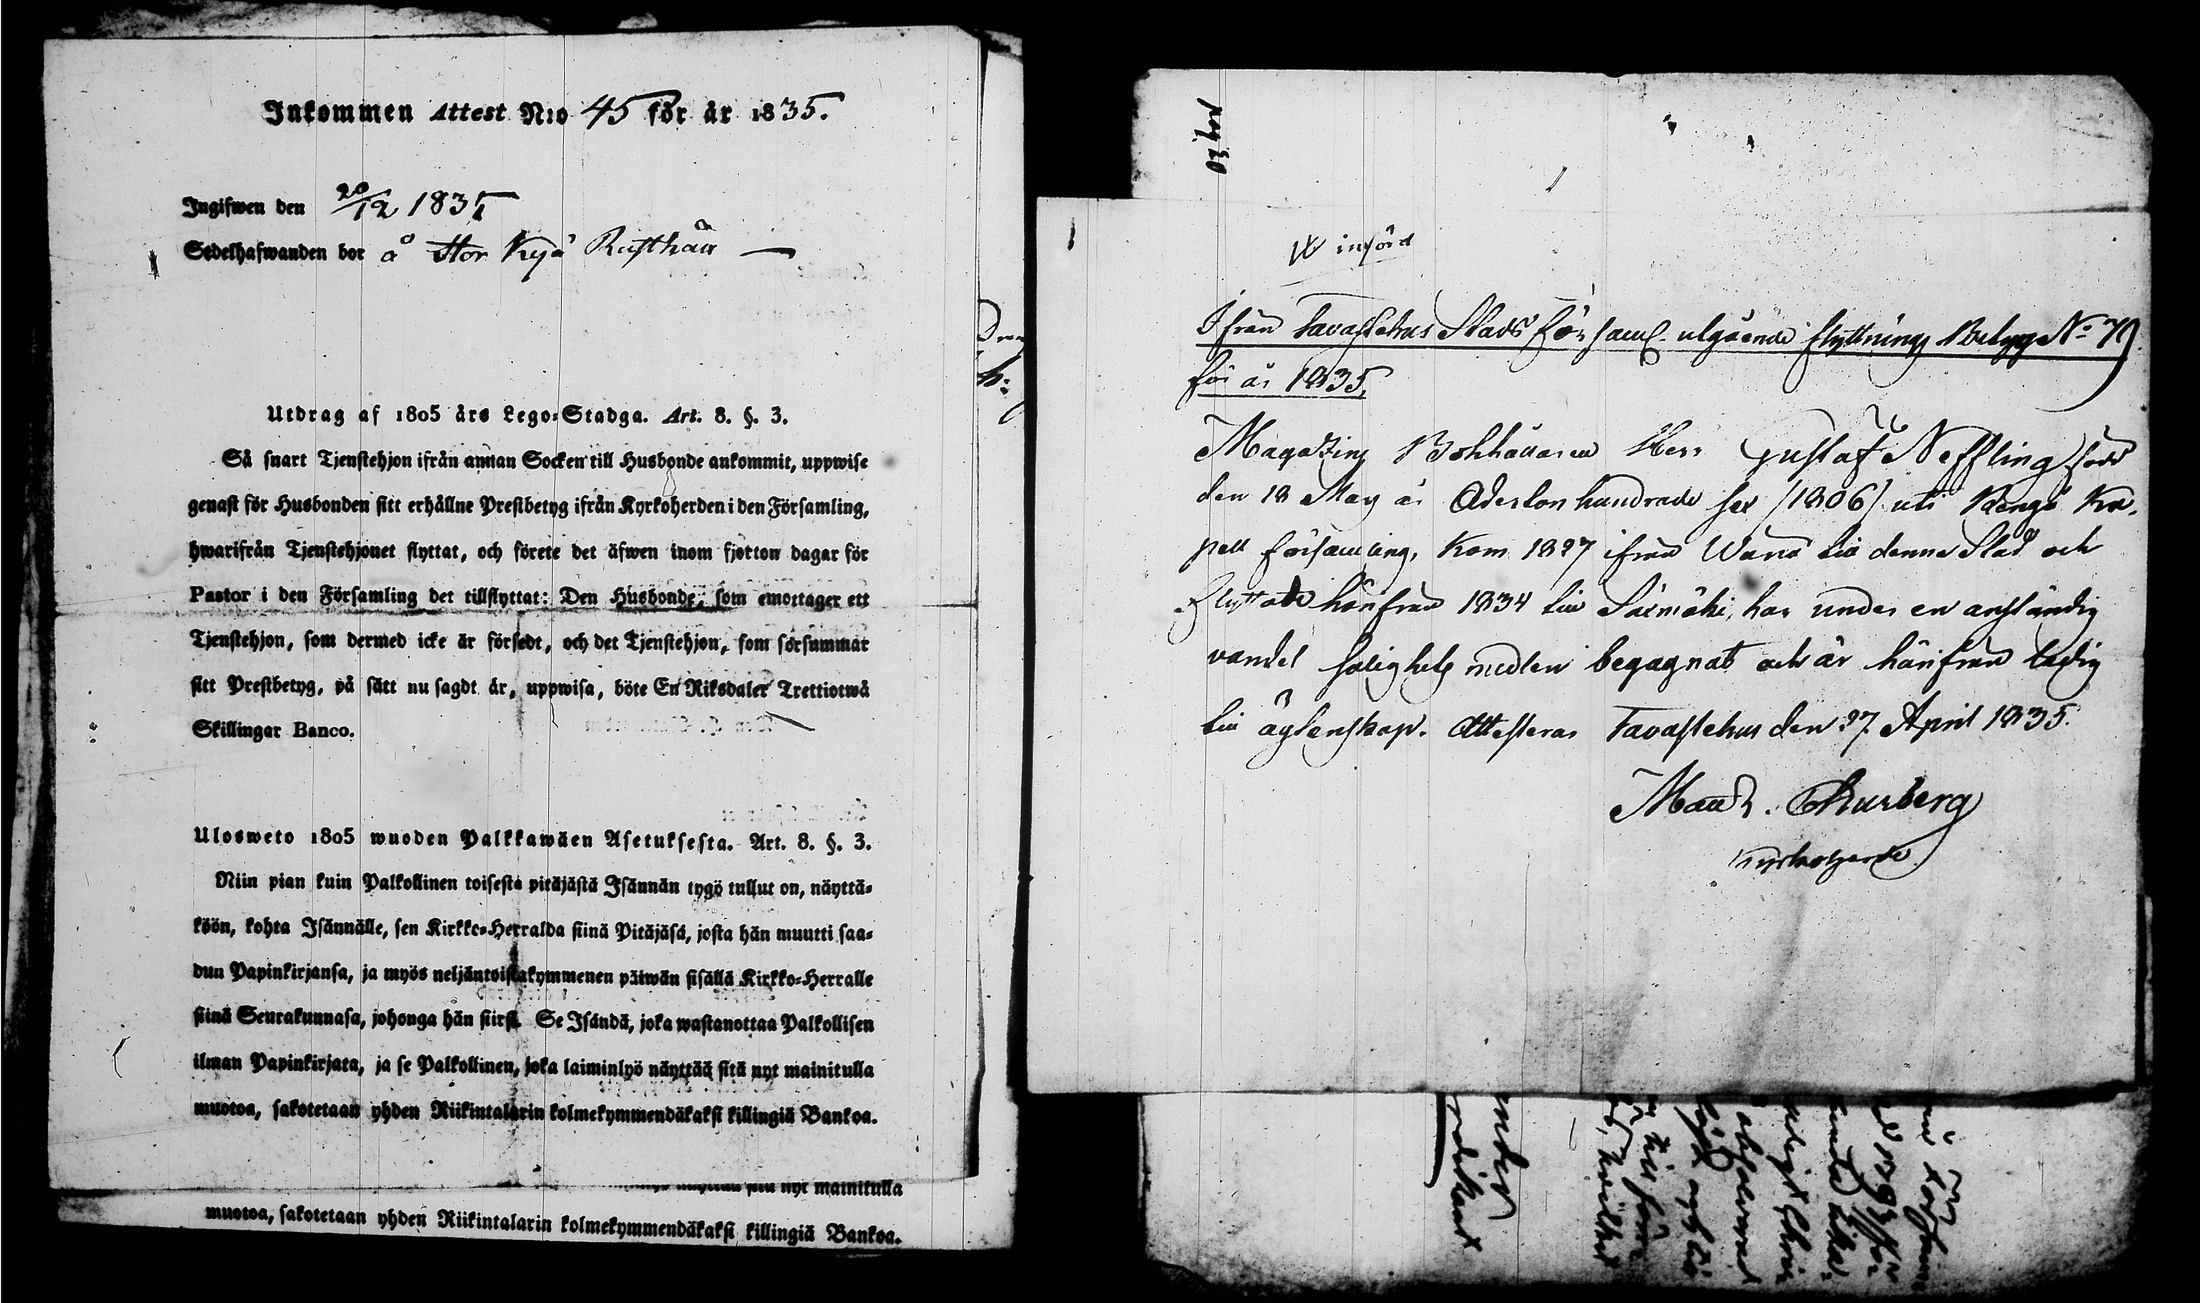 Inkommen Attest N:o 45 för år 1835.
Ingifwen den 20/12 1835
Sedelhafwanden bor å Stor Kyä Rusthåll —
Utdrag af 1805 års Lego-Stadga. Art. 8. §. 3.
Så snart Tjenstehjon ifrån annan Socken till Husbonde ankommit, uppwise
genast för Husbonden sitt erhållne Prestbetyg ifrån Kyrkoherden i den Församling,
hwarifrån Tjenstehjonet flyttat, och förete det äfwen inom fjorton dagar för
Pastor i den Församling det tillflyttat: Den Husbonde, som emottager ett
Tjenstehjon, som dermed icke är försedt, och det Tjenstehjon, som försummar
sitt Prestbetyg, på sätt nu sagdt är, uppwisa, böte En Riksdaler Trettiotwå
Skillingar Banco.
Ulosweto 1805 wuoden Palkkawäen Asetuksesta. Art. 8. §. 3.
Niin pian kuin Palkollinen toisesta pitäjästä Isännän tygö tullut on, näyttä-
köön, kohta Isännälle, sen Kirkko-Herralda siinä Pitäjäsä, josta hän muutti saa-
dun Papinkirjansa, ja myös neljäntoistakymmenen päiwän sisällä Kirkko-Herralle
siinä Seurakunnasa, johonga hän siirsi. Se Isändä, joka wastanottaa Palkollisen
ilman Papinkirjata, ja se Palkollinen, joka laiminlyö näyttää sitä nyt mainitulla
muotoa, sakotetaan yhden Riikintalarin kolmekymmendäkaksi killingiä Bankoa.
nyt mainitulla
muotoa, sakotetaan yhden Riikintalarin kolmekymmendäkaksi killingiä Bankoa.
införd
Ifrån Tavastehus Stads Församl. utgående flyttnings Betyg No 79
för år 1835.
Magazins Bokhållaren Herr Gustaf Neffling född
den 18 May år Adertonhundrade sex (1806) uti Rengo Ka-
pell församling, kom 1827 ifrån Wanå till denne Stad och
flyttade härifrån 1834 till Säxmäki, har under en anständig
vandel salighets medlen begagnat och är härifrån ledig
till ägtenskap. Attesteras Tavastehus den 27 April 1835.
Churberg
Kyrkoherde